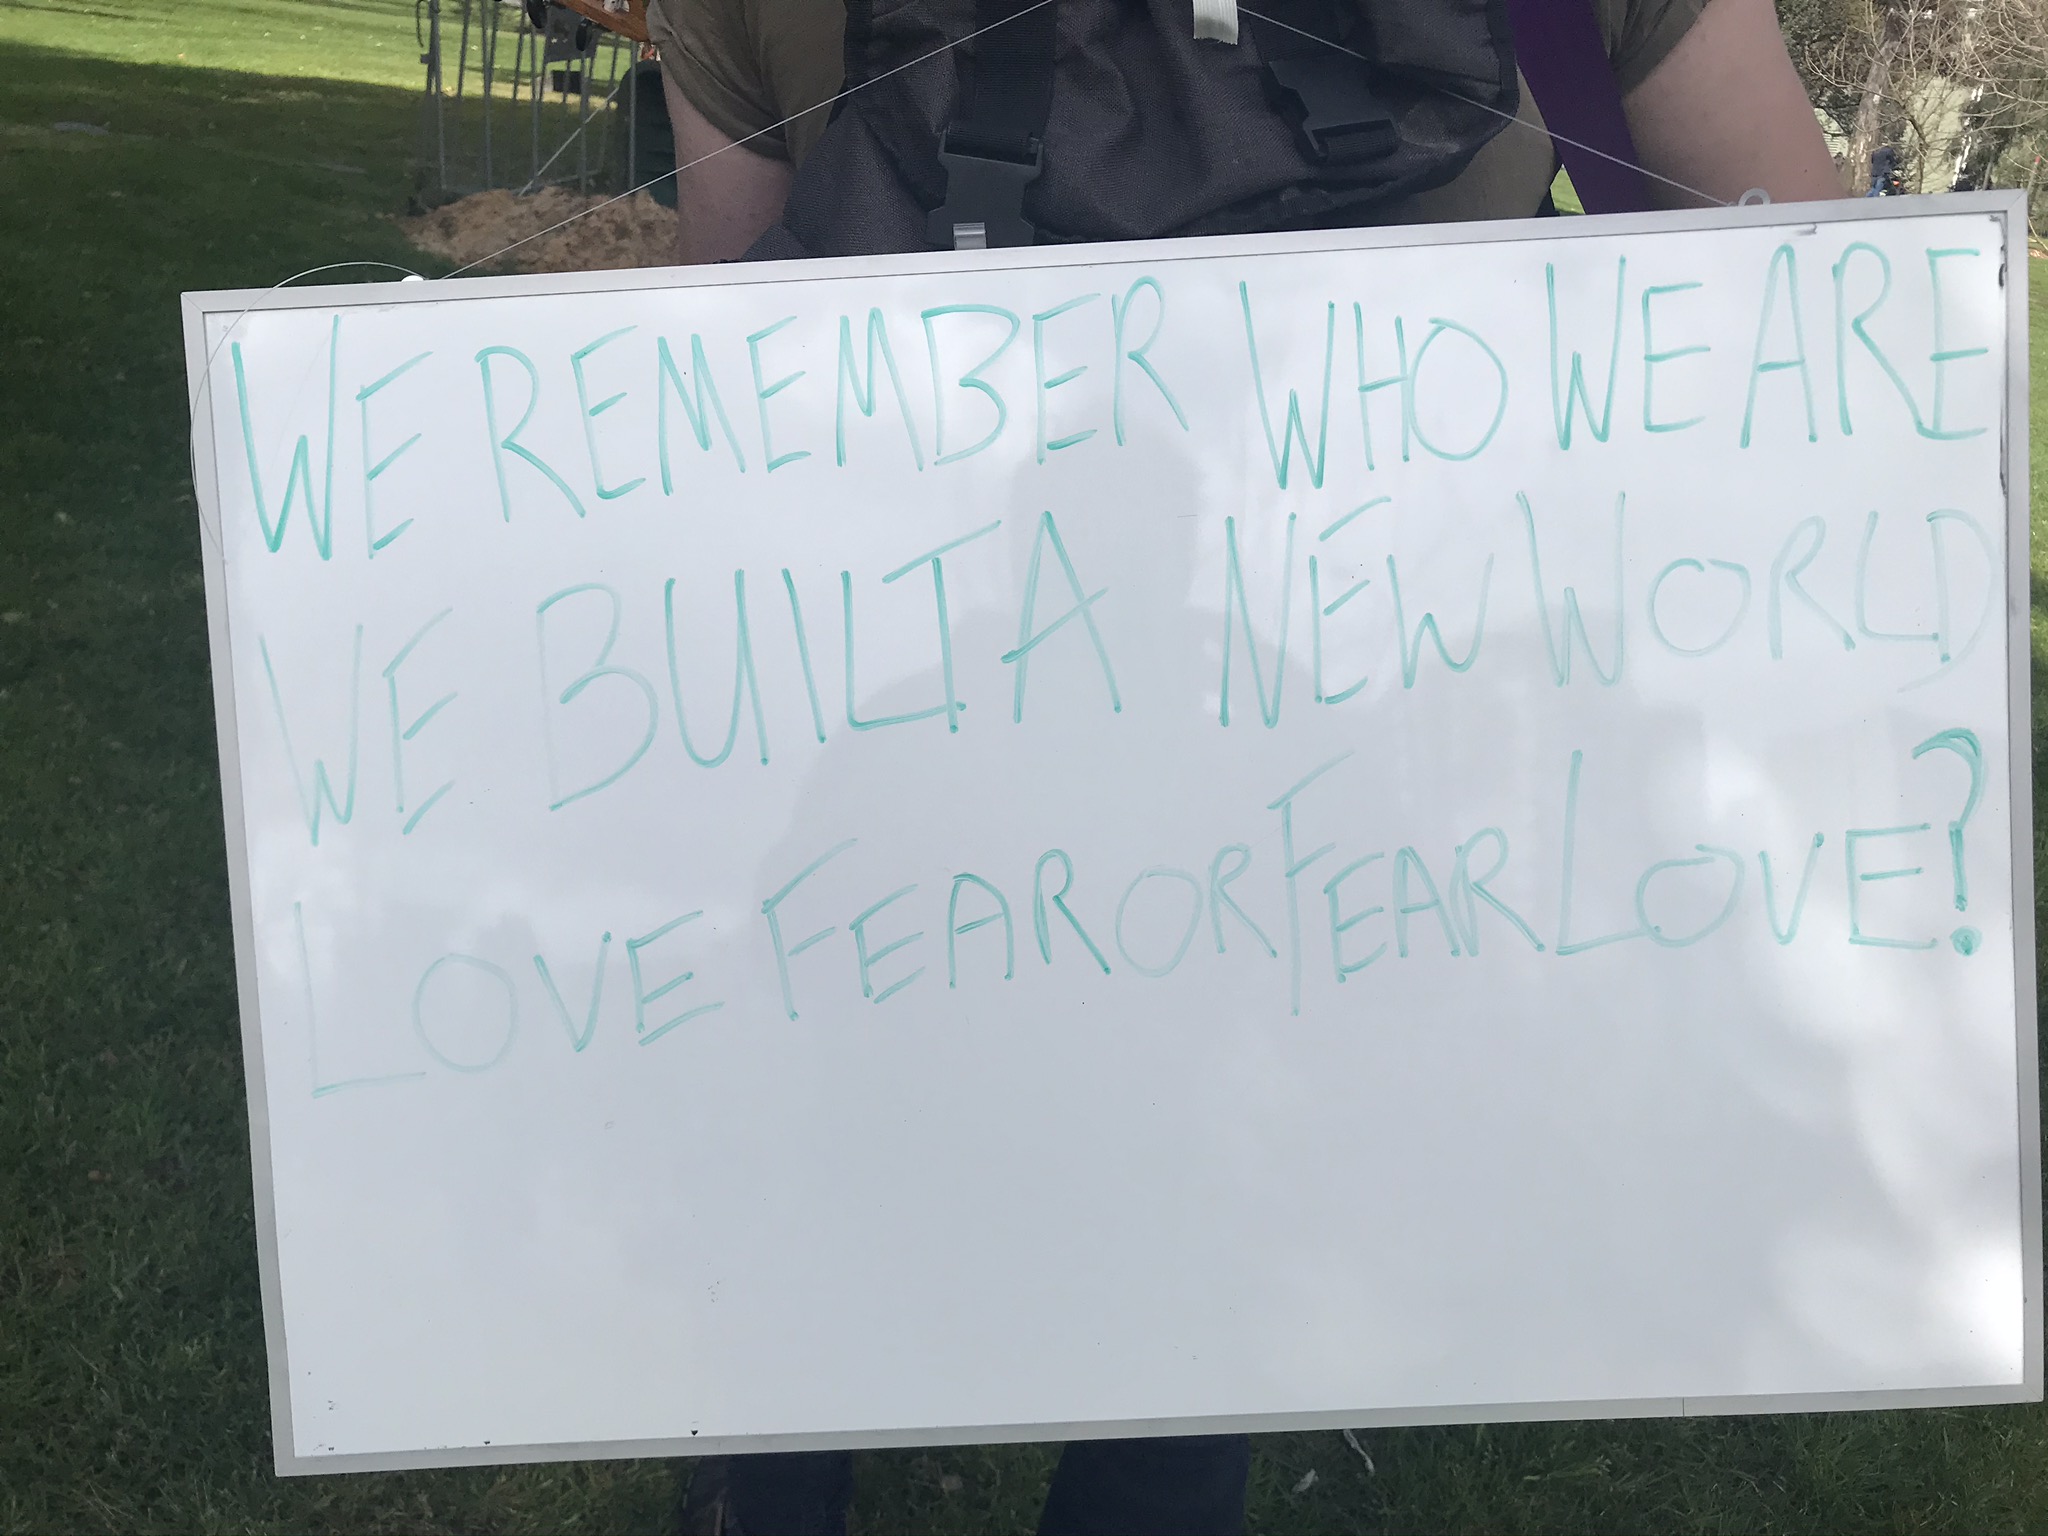 WE REMEMBER WHO WE ARE
WE BUILT A NEW WORLD
LOVE FEAR OR FEAR LOVE?